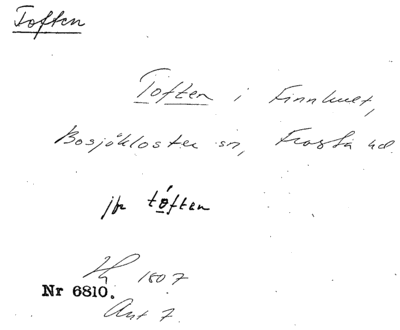 Toften
Toften i Finnhult,
Bosjökloster sn, Frosta hd.
jfr tóften
1807
Nr 6810.
Ant 7